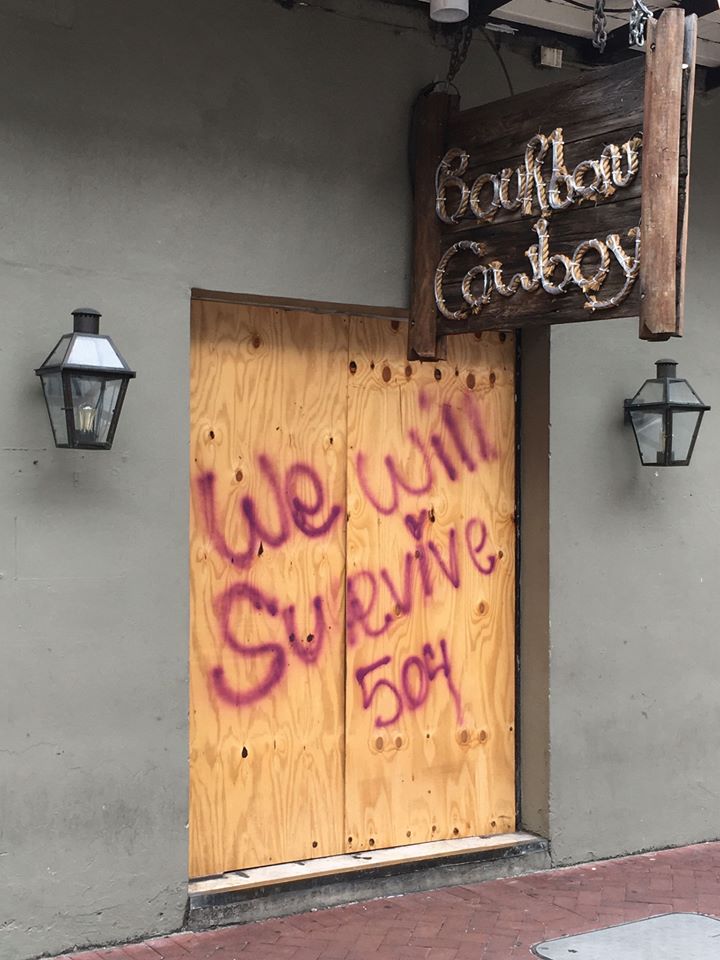 Bourbon
Cowboy
We will
Survive
504